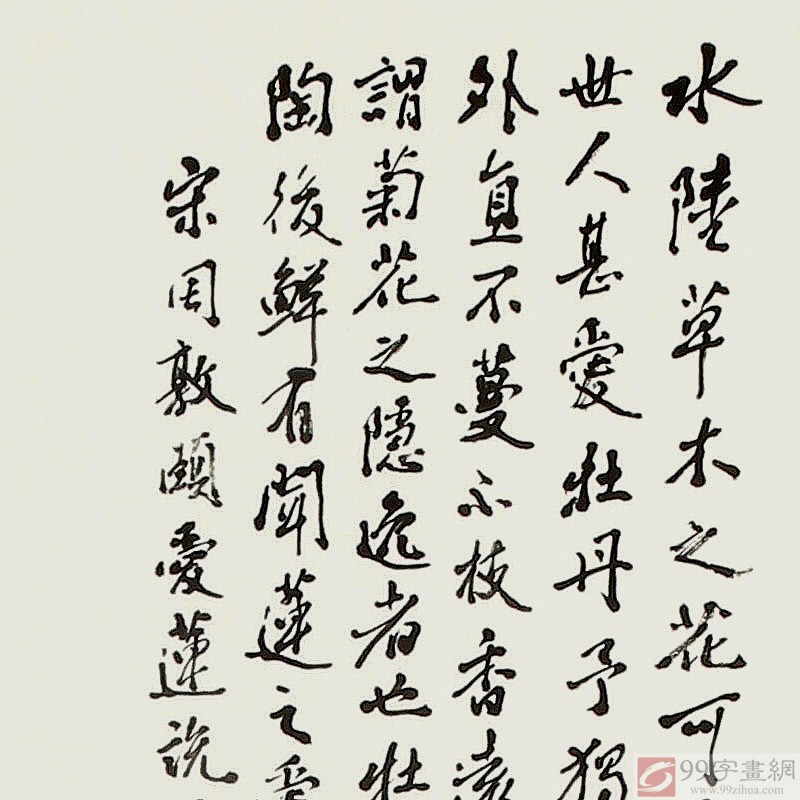 水陸草木之花可
世人甚愛牡丹予獨
外直不蔓不枝香遠
謂菊花之隱逸者也牡
陶後鮮有聞蓮之愛
宋周敦頤愛蓮說
99字畫網
www.99zihua.com